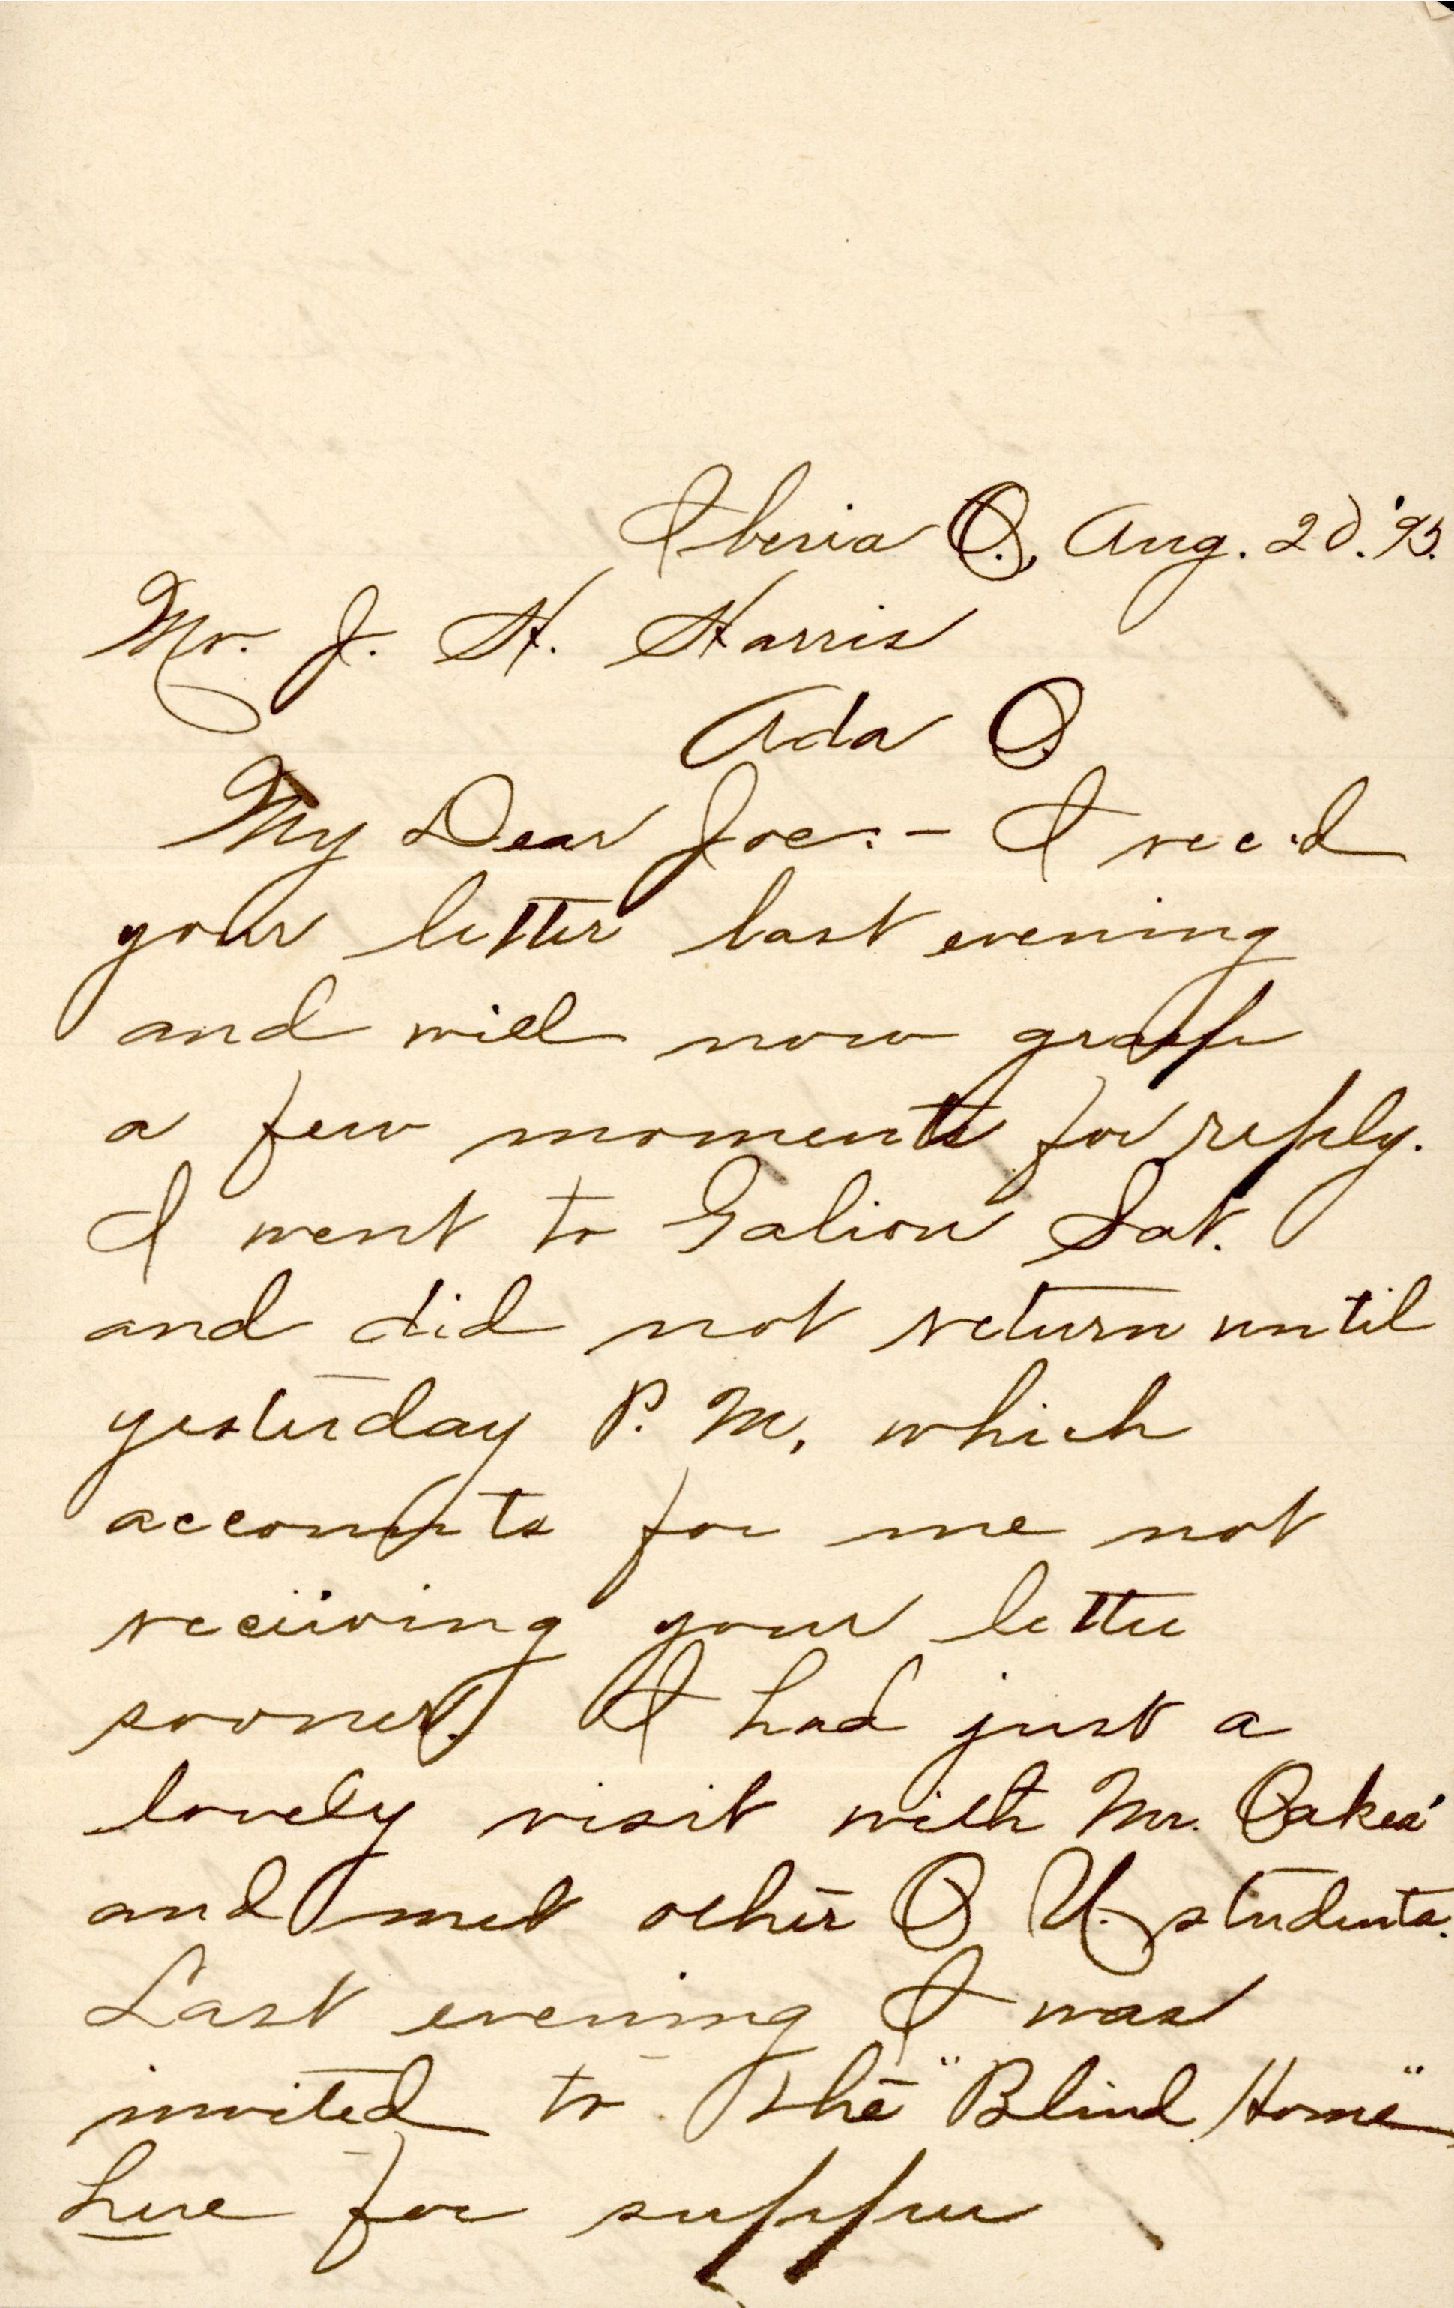 Iberia O., Aug. 20. '95.
Mr. J. H. Harris
Ada O.
My Dear Joe:- I rec.d
your letter last evening
and will now grasp
a few moments for reply.
I went to Galion Sat.
and did not return until
yesterday P. M. which
accounts for me not
receiving your letter
sooner. I had just a
lovely visit with Mr. Oakes'
and met other O. U. students.
Last evening I was
invited to the "Blind Home"
here for supper